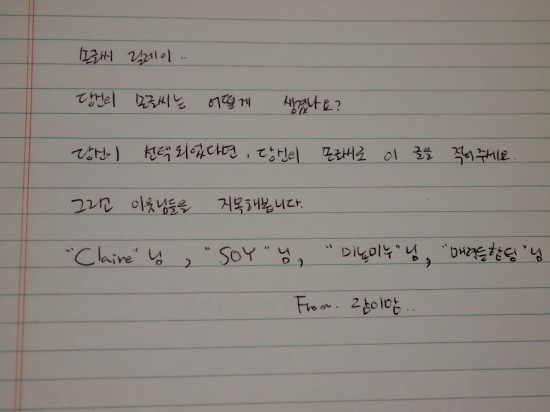 모모씨 릴레이..
당신의 모모씨는 어떻게 생겼나요?
당신이 선택되었다면, 당신의 모모씨로 이 글을 적어주세요.
그리고 이웃님들을 지목해봅니다.
"Claire"님, "SOY"님, "미뇽미누"님, "매력동한덩"님
From. 같이맘..